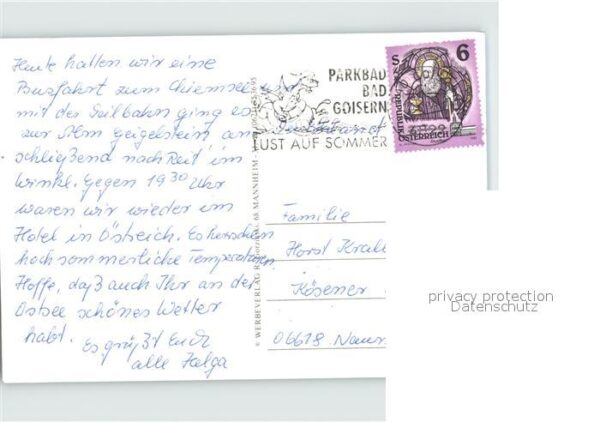 Heute hatten wir eine
Busfahrt zum Chiemsee
mit der Seilbahn ging es
zur Alm geigelstein an
schließend nach Reit im
Winkl. Gegen 19 30 Uhr
waren wir wieder im
Hotel in Östreich. Es herrschen
hochsommerliche Temperaturen.
Hoffe, daß auch Ihr an der
Ostsee schönes Wetter
habt. Es grüßt Euch
alle Helga
PARKBAD
BAD
GOISERN
LUST AUF SOMMER
S 6
REPUBLIK
ÖSTERREICH
© WERBEVERLAG 68 MANNHEIM
Familie
Horst
Kösener
06618 Naum
privacy protection
Datenschutz